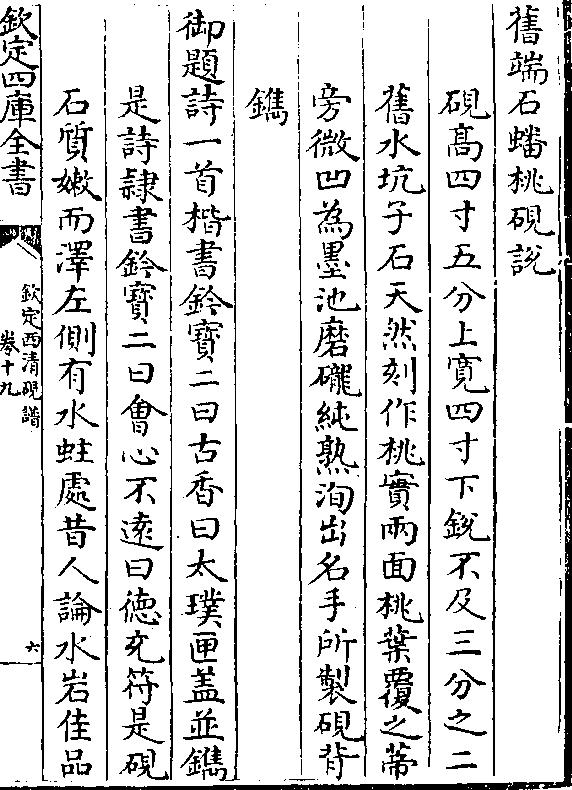 舊端石蟠桃硯說
硯高四寸五分上寬四寸下銳不及三分之二
舊水坑子石天然刻作桃實兩面桃葉覆之蒂
旁微凹為墨池磨礲純熟洵出名手所製硯背
鐫
御題詩一首楷書鈐寶二曰古香曰太璞匣蓋並鐫
是詩隸書鈐寶二曰會心不遠曰德充符是硯
石質嫩而澤左側有水蛀處昔人論水岩佳品
欽定四庫全書
欽定西清硯譜
卷十九
六